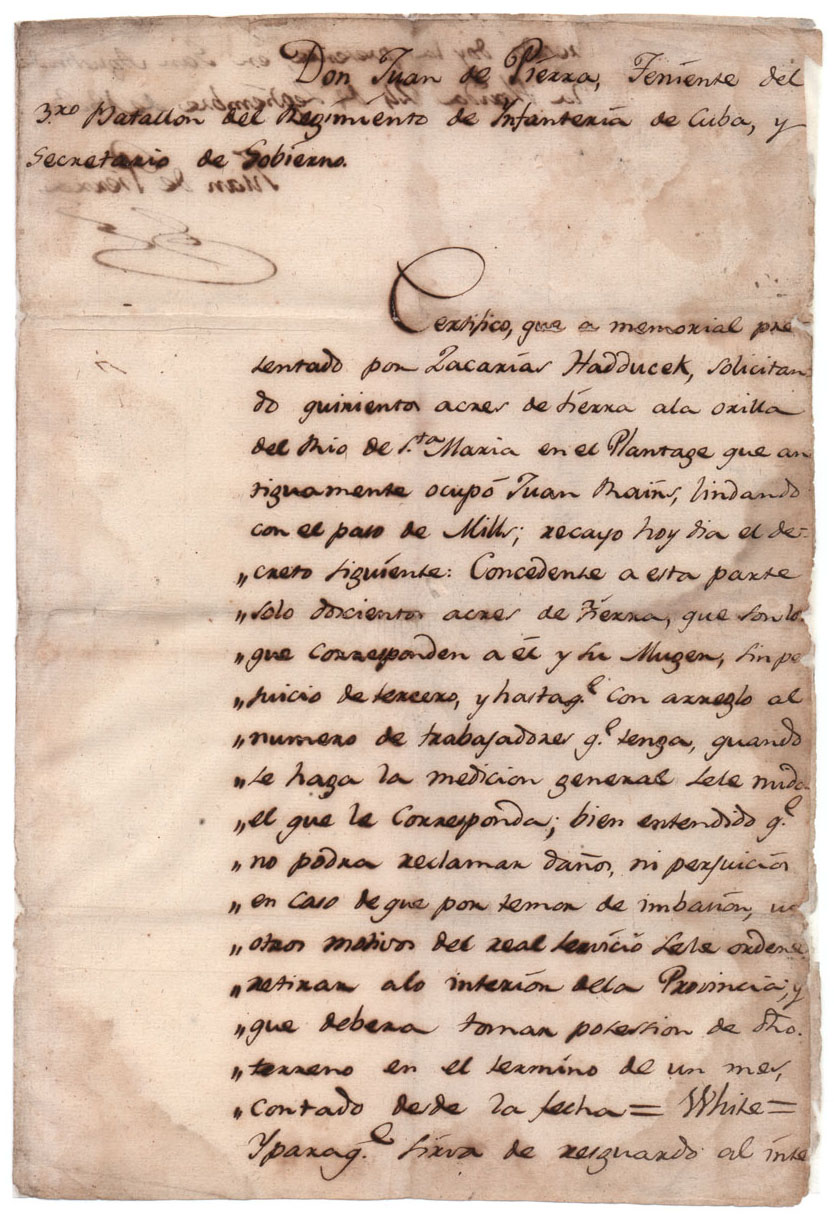 Don Juan de Pierra, Teniente del
3.ro Batallon del Regimiento de Infanteria de Cuba, y
Secretario de Gobierno.
Certifico, que a memorial pre
sentado por Zacarias Hadducek, solicitan
do quinientos acres de tierra ala orilla
del Rio de S.ta Maria en el Plantage que an
tiguamente ocupó Juan Rains, lindando
con el paso de Mills; recayo hoy dia el de-
„creto siguiente: Concedense a esta parte
„solo doscientos acres de tierra, que son lo
„que corresponden a él y su Muger, sin pe
„juicio de tercero, y hasta q.e con arreglo al
„numero de trabajadores q.e tenga, quando
„se haga la medicion general sele mida
„el que le Corresponda; bien entendido q.e
„no podra reclamar daños, ni perjuicios
„en caso de que por temor de imbasion, u
„otros motivos del real servicio sele ordene
„retirar alo interior dela Provincia; y
„que debera tomar potession de dho.
„terreno en el termino de un mes,
„contado de de la fecha = White =
Y para q.e sirva de resguardo al inte
Juan de Pierra